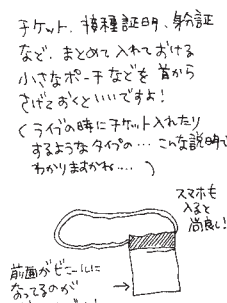 チケット、接種証明、身分証
など、まとめて入れておける
小さなポーチなどを首から
さげておくといいですよ!
(ライブの時にチケット入れたり
するようなタイプの…こんな説明で
わかりますかね…。)
スマホも
入ると
尚良し!
前面がビニールに
なってるのが